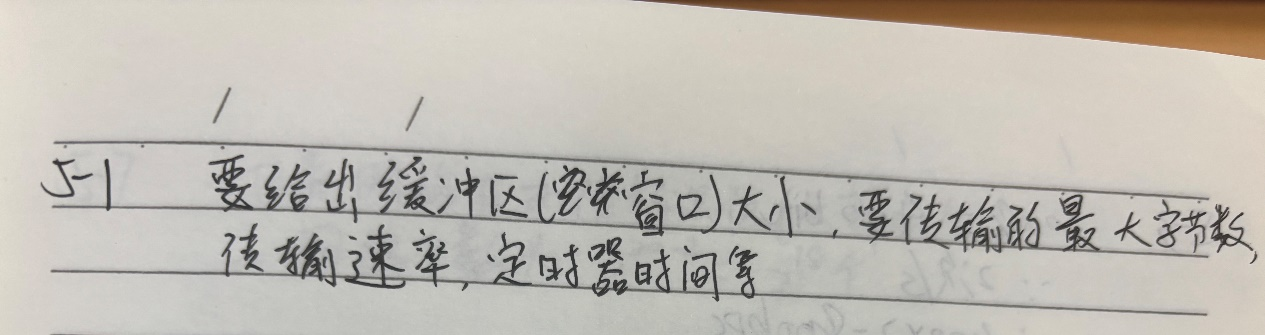 5-1 要给出缓冲区(窗口)大小,要传输的最大字节数,
传输速率,定时器时间等